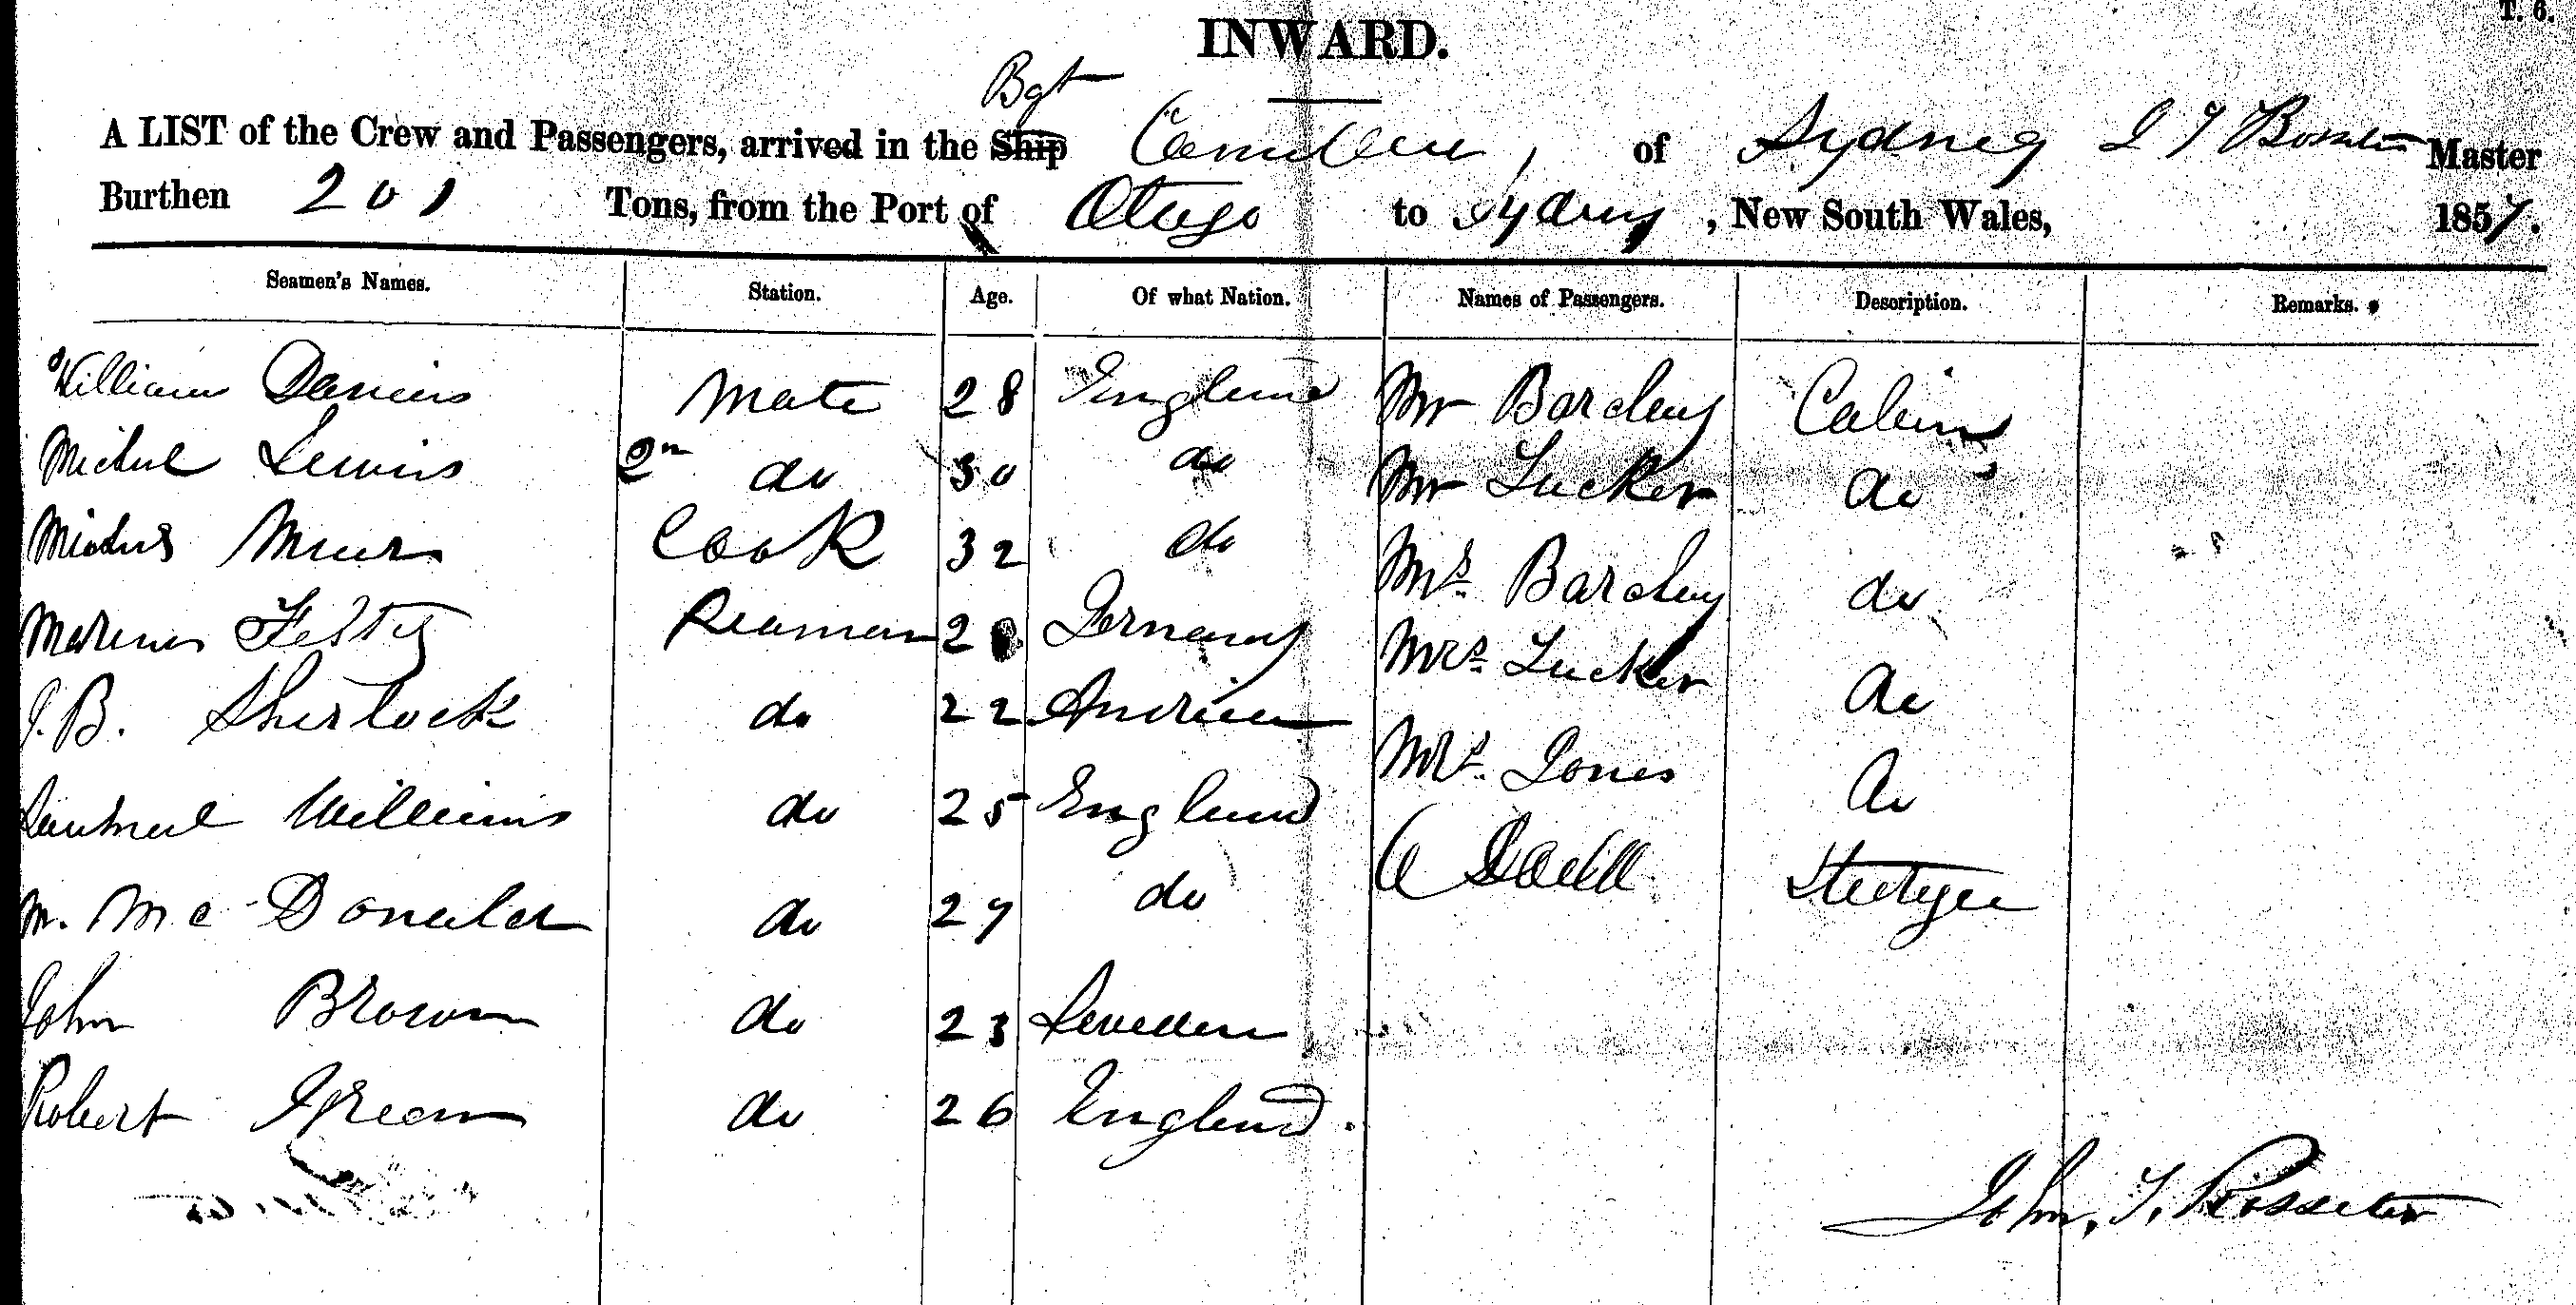 T. 6.
INWARD.
Bgt
A LIST of the Crew and Passengers, arrived in the Ship of Sydney Master
Burthen 201 Tons, from the Port of Otago to Sydney, New South Wales, 1857.
Seamen's Names. Station. Age. Of what Nation. Names of Passengers. Description. Remarks.
William Mate 28 England Mr Barclay Cabin
Lewis 2n do 30 do Mr Tucker do
Cook 32 do Mrs Barclay do
Seaman Germany Mrs Tucker do
J.B. Sherlock do 22 Mrs Jones do
Williams do 25 England Steerage
M. McDonald do 27 do
John Brown do 23 Sweden
Robert Green do 26 England.
John. T. Rosseter